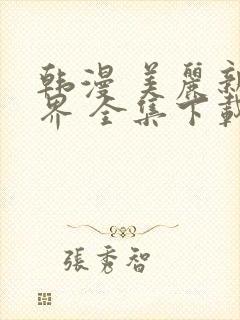 韩漫 美麗新
界 全集下載
張秀智